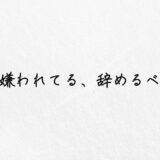 嫌われてる、辞めるべ